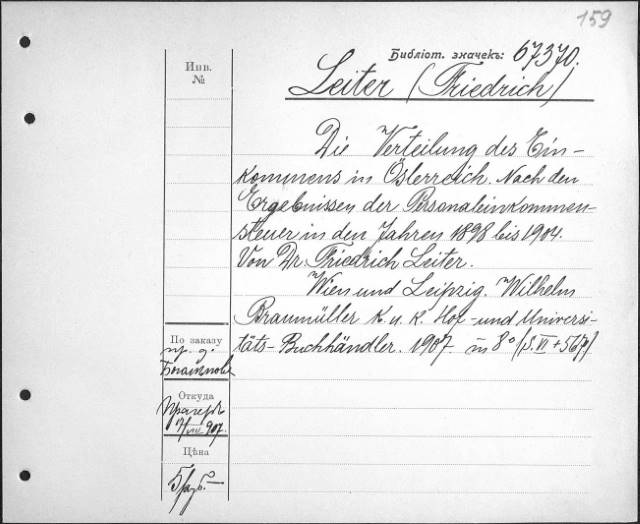 159
Библіот. значекъ: 67370.
Инв.
№
Leiter (Friedrich)
Die Verteilung des Ein-
kommens in Österreich. Nach den
Ergebnissen der Personaleinkommen-
steuer in den Jahren 1898 bis 1904.
Von Dr. Friedrich Leiter.
Wien und Leipzig. Wilhelm
Braumüller k. u. k. Hof- und Universi-
täts-Buchhändler. 1907. in 8° (S. VI +
По заказу
пр. д.
Откуда
907.
Цѣна
5 руб.